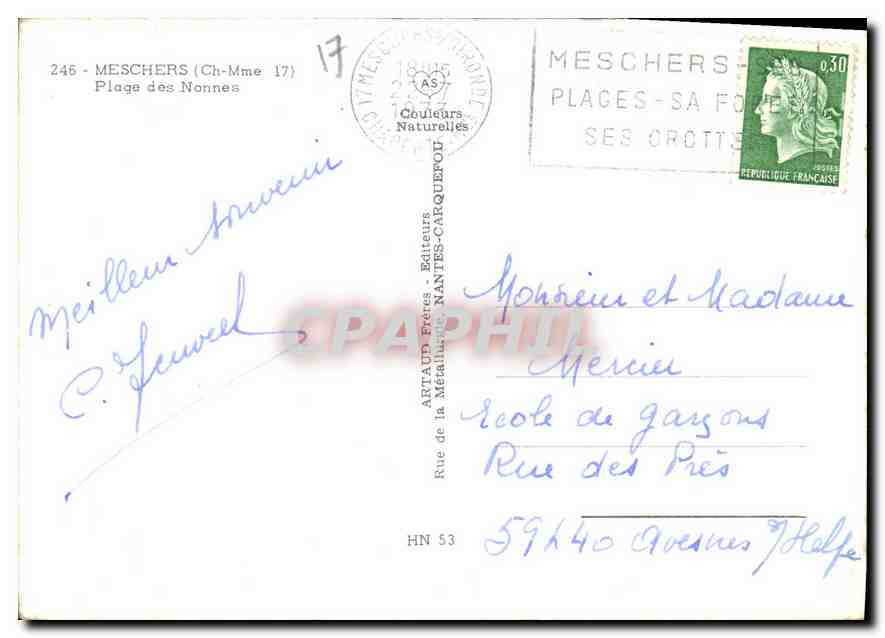 246 - MESCHERS (Ch-Mme 17)
Plage des Nonnes
17
17 MESCHERS S/ GIRONDE
18H15
AS
Couleurs
Naturelles
MESCHERS - S
PLAGES - SA FORE
SES GROTTE
0,30
REPUBLIQUE FRANÇAISE
Meilleur souvenir
C.
ARTAUD Frères - Editeurs
Rue de la Métallurgie, NANTES-CARQUEFOU
CPAPHIL
Monsieur et Madame
Mercier
Ecole de garçons
Rue des Près
59440 Avesnes s/Helpe
HN 53